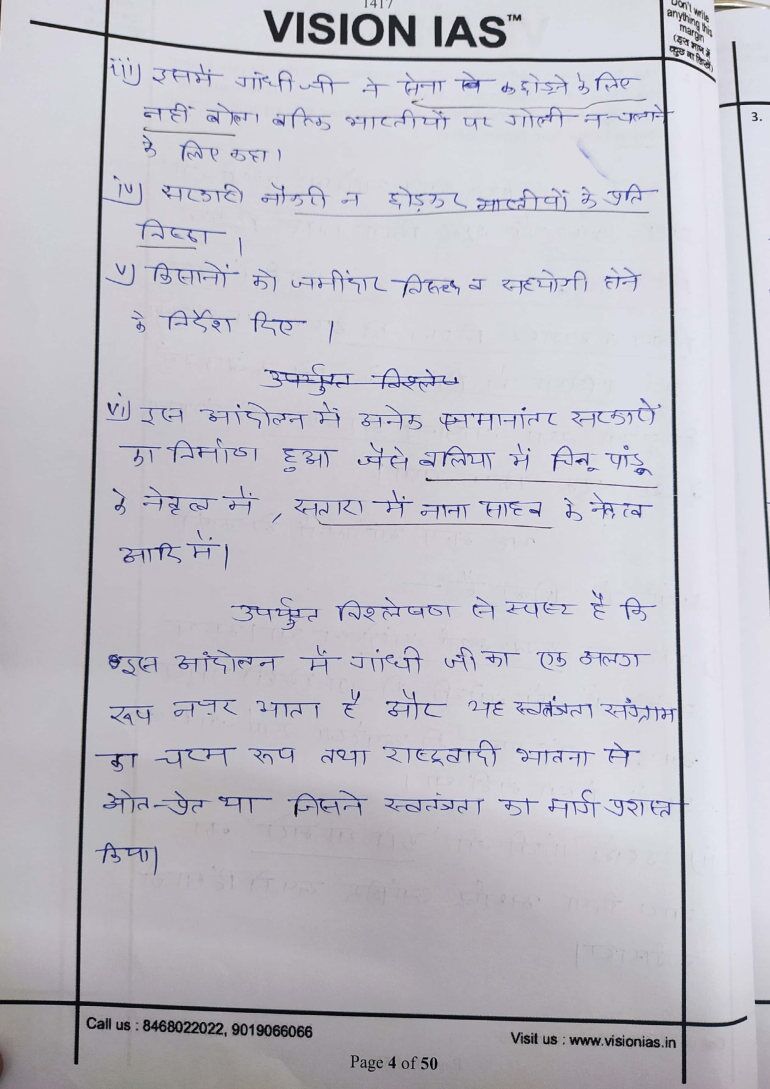 1417
VISION IAS™
Don't write
anything this
margin
(इस भाग में
कुछ ना लिखें)
3.
iii) इसमें गांधी जी ने सेना को छोड़ने के लिए
नहीं बोला बल्कि भारतीयों पर गोली न चलाने
के लिए कहा।
iv) सरकारी नौकरी न छोड़कर भारतीयों के प्रति
निष्ठा।
v) किसानों को जमींदार विरुद्ध व सहयोगी होने
के निर्देश दिए।
उपर्युक्त विश्लेष
vi) इस आंदोलन में अनेक समानांतर सरकारों
का निर्माण हुआ जैसे बलिया में चित्तू पांडू
के नेतृत्व में, सतारा में नाना साहब के नेतृत्व
आदि में।
उपर्युक्त विश्लेषण से स्पष्ट है कि
इस आंदोलन में गांधी जी का एक अलग
रूप नजर आता है और यह स्वतंत्रता संग्राम
का चरम रूप तथा राष्ट्रवादी भावना से
ओत-प्रोत था जिसने स्वतंत्रता का मार्ग प्रशस्त
किया।
Call us : 8468022022, 9019066066
Visit us : www.visionias.in
Page 4 of 50